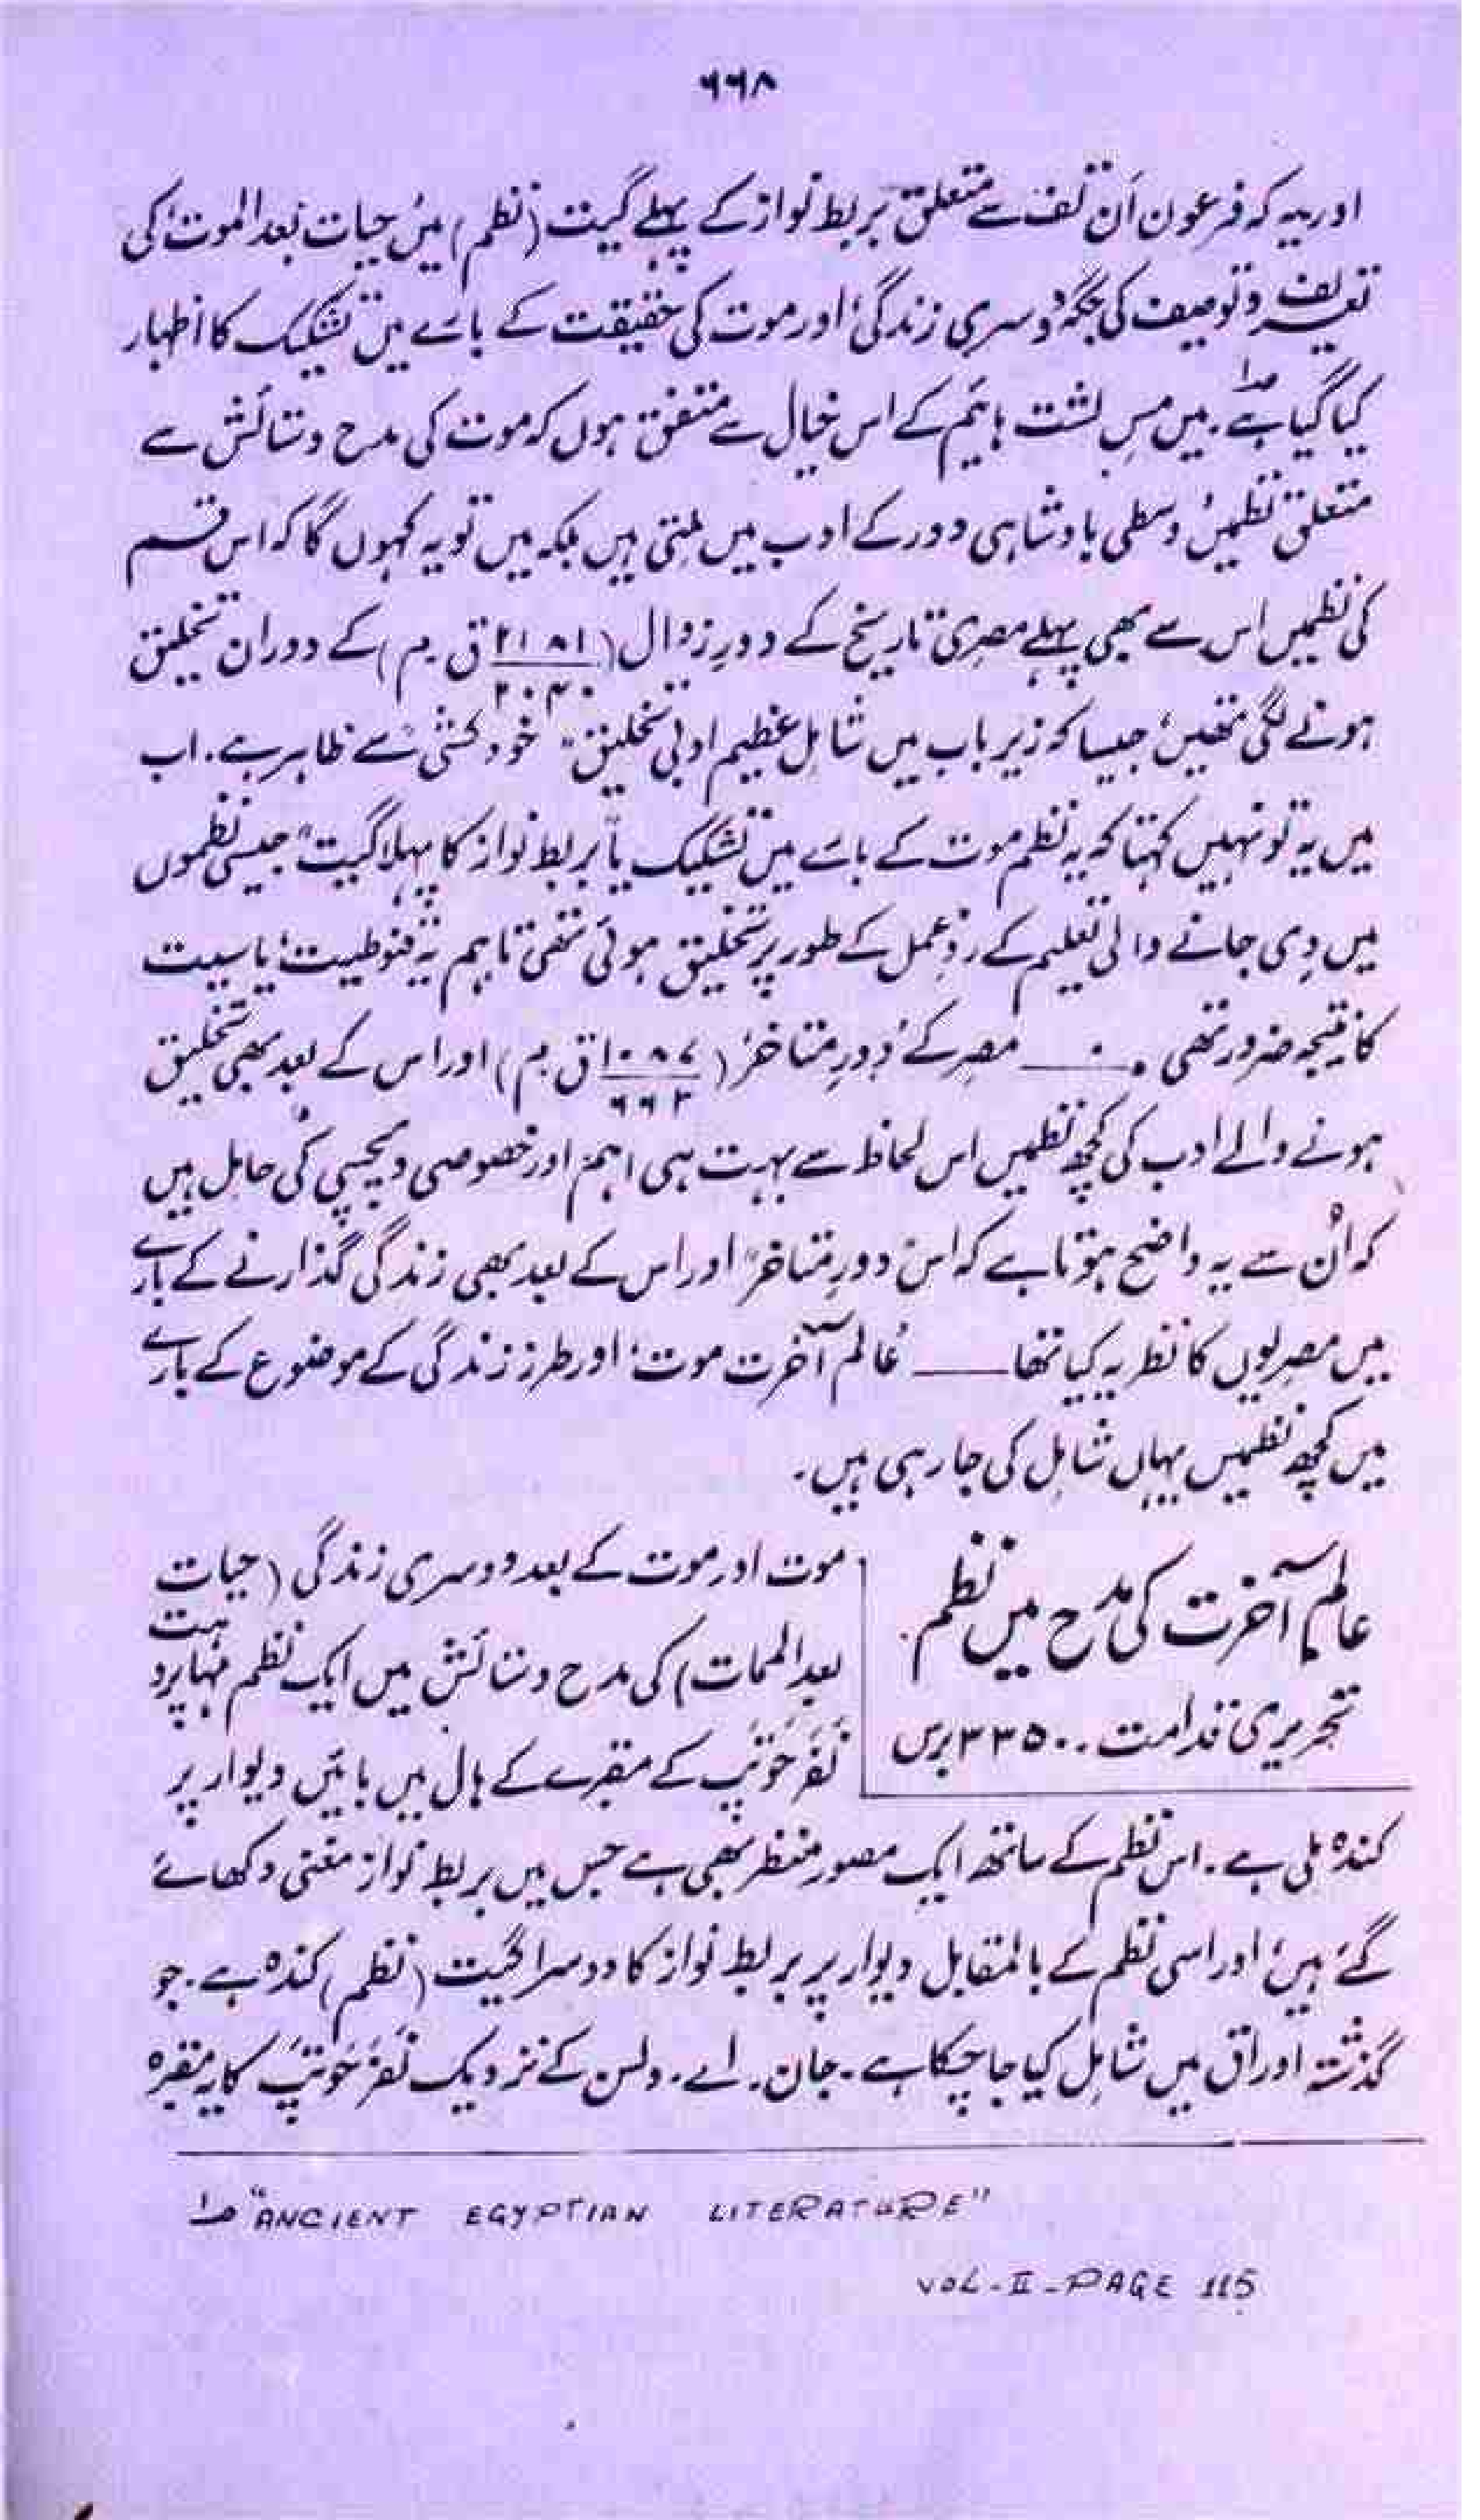 ۶۶۸
اور یہ کہ فرعون اَن تف سے متعلق بربط نواز کے پہلے گیت (نظم) میں حیات بعد الموت کی
تعریف و توصیف کی جگہ دوسری زندگی اور موت کی حقیقت کے بارے میں تشکیک کا اظہار
کیا گیا ہے۔ میں مس لشت ہائیم کے اس خیال سے متفق ہوں کہ موت کی مدح و ستائش سے
متعلق نظمیں وسطی بادشاہی دور کے ادب میں ملتی ہیں بلکہ میں تو یہ کہوں گا کہ اس قسم
کی نظمیں اس سے بھی پہلے مصری تاریخ کے دورِ زوال (۲۱۸۱/۲۰۴۰ ق م) کے دوران تخلیق
ہونے لگی تھیں، جیسا کہ زیر باب میں شامل عظیم ادبی تخلیق "خودکشی" سے ظاہر ہے۔ اب
میں یہ تو نہیں کہتا کہ یہ نظم موت کے بارے میں تشکیک یا "بربط نواز کا پہلا گیت" جیسی نظموں
میں دی جانے والی تعلیم کے ردِ عمل کے طور پر تخلیق ہوئی تھی تاہم یہ قنوطیت، یاسیت
کا نتیجہ ضرور تھی۔ —— مصر کے دورِ متاخر (۱۰۸۷/۶۶۳ ق م) اور اس کے بعد بھی تخلیق
ہونے والے ادب کی کچھ نظمیں اس لحاظ سے بہت ہی اہم اور خصوصی دلچسپی کی حامل ہیں
کہ اُن سے یہ واضح ہوتا ہے کہ اس دورِ متاخر اور اس کے بعد بھی زندگی گذارنے کے بارے
میں مصریوں کا نظریہ کیا تھا —— عالم آخرت، موت، اور طرز زندگی کے موضوع کے بارے
میں کچھ نظمیں یہاں شامل کی جا رہی ہیں۔
عالمِ آخرت کی مدح میں نظم
تحریری قدامت ۔۔ ۳۳۵۰ برس
موت اور موت کے بعد دوسری زندگی (حیات
بعد الممات) کی مدح و ستائش میں ایک نظم مہا پروہت
نَفَر حَوتَپ کے مقبرے کے ہال میں بائیں دیوار پر
کندہ ملی ہے۔ اس نظم کے ساتھ ایک مصور منظر بھی ہے جس میں بربط نواز مغنی دکھائے
گئے ہیں، اور اسی نظم کے بالمقابل دیوار پر بربط نواز کا دوسرا گیت (نظم) کندہ ہے۔ جو
گذشتہ اوراق میں شامل کیا جا چکا ہے۔ جان۔ اے۔ ولسن کے نزدیک نَفَر حَوتَپ کا یہ مقبرہ
ص۱ "ANCIENT EGYPTIAN LITERATURE"
VOL-II-PAGE 115